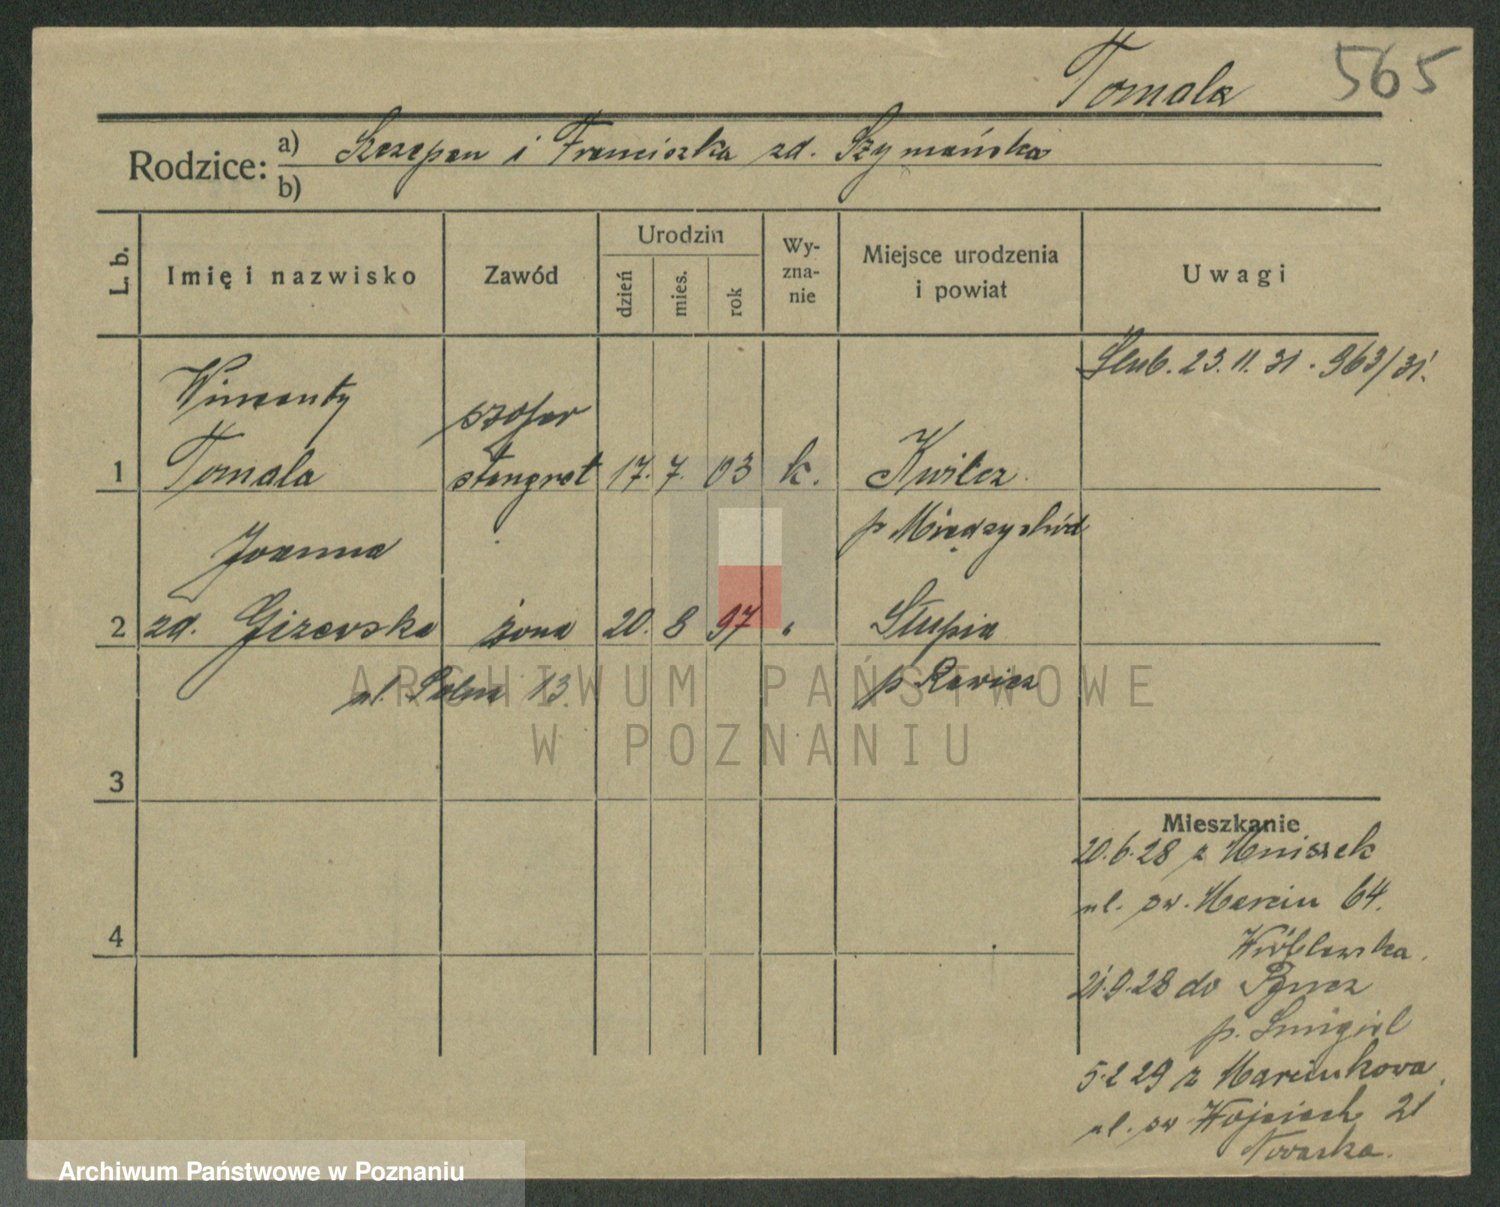 565
Tomala
Rodzice: a) Szczepan i Franciszka zd. Szymańska
b)
L. b. Imię i nazwisko Zawód Urodzin Wyznanie Miejsce urodzenia i powiat Uwagi
dzień mies. rok
Ślub. 23.11.31. 963/31.
Wincenty szofer
1 Tomala stangret 17. 7. 03 k. Kwilcz
p Międzychód
Joanna
2 zd. Gizewska żona 20. 8 97 " Słupia
ul. Polna 13. p Rawicz
ARCHIWUM PAŃSTWOWE
W POZNANIU
3
4
Mieszkanie
20.6.28 z Mniszek
ul. św. Marcin 64.
Wróblewska.
21.9.28 do
p. Śmigiel
5.2 29 z Marcinkowa
ul. św Wojciech 21
Nowaska.
Archiwum Państwowe w Poznaniu